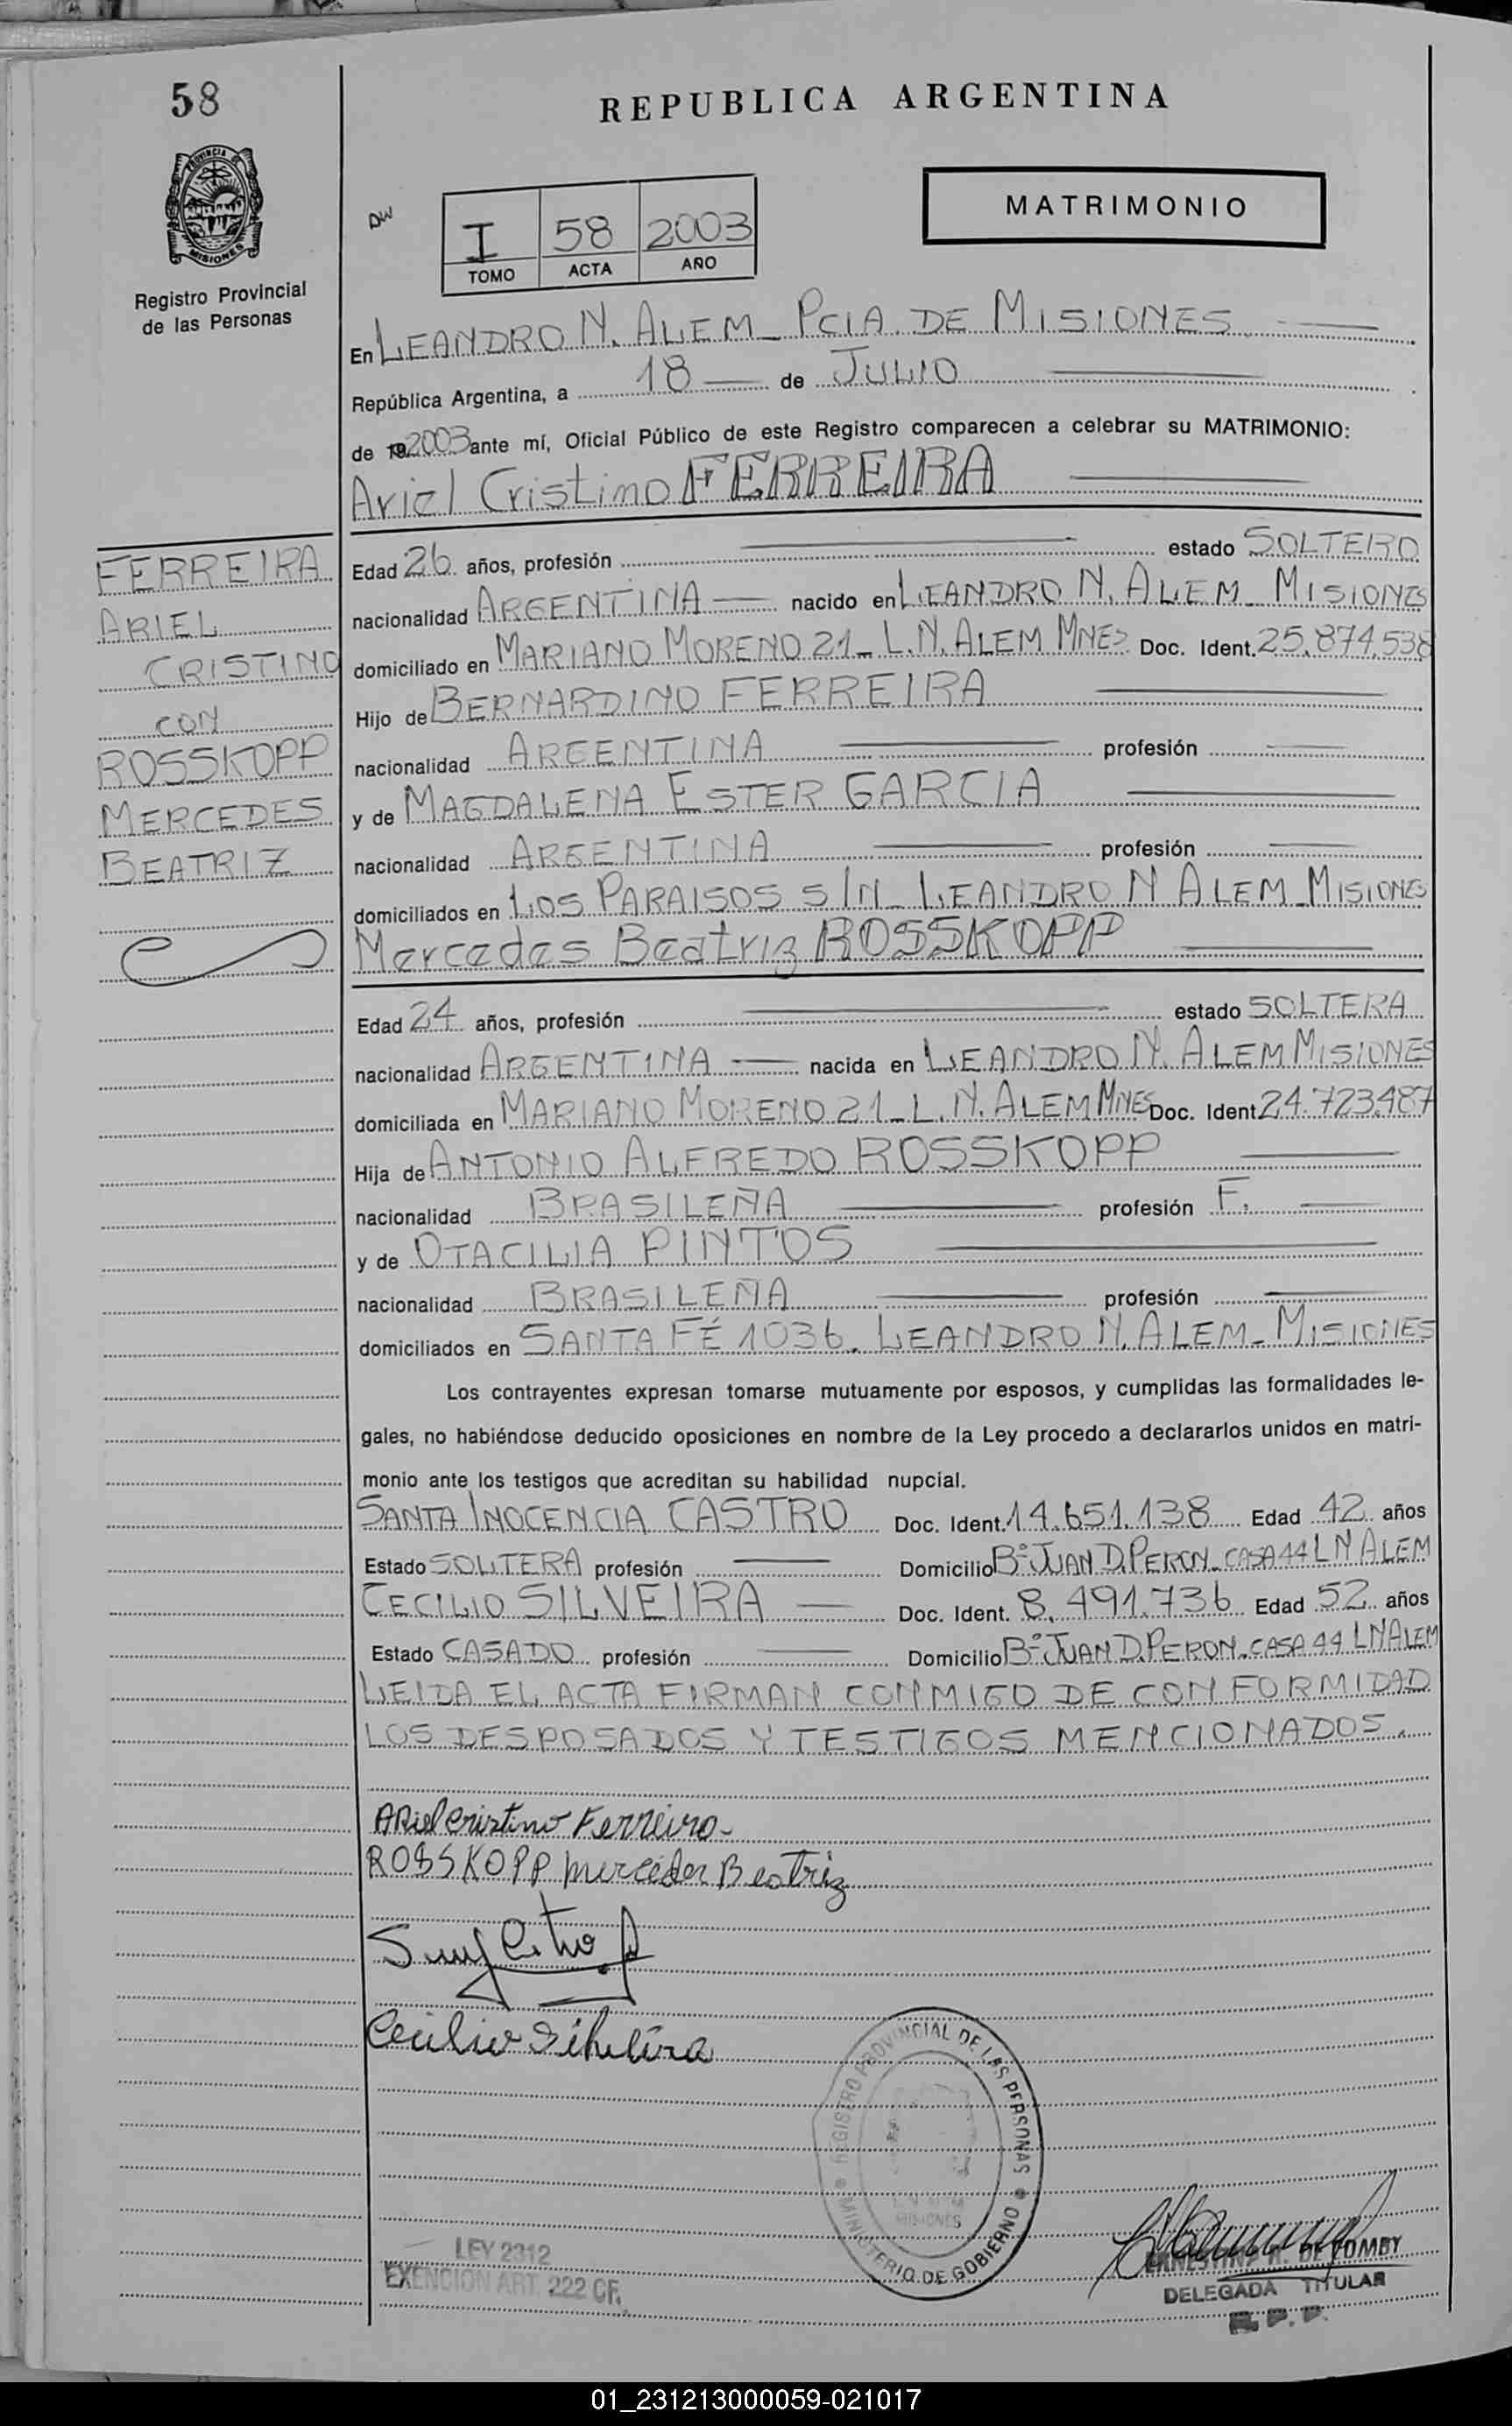 58
REPUBLICA ARGENTINA
PROVINCIA DE
MISIONES
Registro Provincial
de las Personas
DW
I 58 2003
TOMO ACTA AÑO
MATRIMONIO
En LEANDRO N. ALEM_ PCIA. DE MISIONES
República Argentina, a 18 de JULIO
de 19 2003 ante mí, Oficial Público de este Registro comparecen a celebrar su MATRIMONIO:
Ariel Cristino FERREIRA
FERREIRA
ARIEL
CRISTINO
CON
ROSSKOPP
MERCEDES
BEATRIZ
Edad 26 años, profesión estado SOLTERO
nacionalidad ARGENTINA nacido en LEANDRO N. ALEM_ MISIONES
domiciliado en MARIANO MORENO 21_ L.N. ALEM MNES Doc. Ident. 25.874.538
Hijo de BERNARDINO FERREIRA
nacionalidad ARGENTINA profesión
y de MAGDALENA ESTER GARCIA
nacionalidad ARGENTINA profesión
domiciliados en LOS PARAISOS S/N_ LEANDRO N ALEM_MISIONES
Mercedes Beatriz ROSSKOPP
Edad 24 años, profesión estado SOLTERA
nacionalidad ARGENTINA nacida en LEANDRO N. ALEM MISIONES
domiciliada en MARIANO MORENO 21_L.N. ALEM MNES Doc. Ident. 24.723.487
Hija de ANTONIO ALFREDO ROSSKOPP
nacionalidad BRASILEÑA profesión F.
y de OTACILIA PINTOS
nacionalidad BRASILEÑA profesión
domiciliados en SANTA FÉ 1036. LEANDRO N. ALEM_ MISIONES
Los contrayentes expresan tomarse mutuamente por esposos, y cumplidas las formalidades le-
gales, no habiéndose deducido oposiciones en nombre de la Ley procedo a declararlos unidos en matri-
monio ante los testigos que acreditan su habilidad nupcial.
SANTA INOCENCIA CASTRO Doc. Ident. 14.651.138 Edad 42 años
Estado SOLTERA profesión Domicilio Bº JUAN D. PERON_ CASA 44 L N ALEM
CECILIO SILVEIRA Doc. Ident. 8.491.736 Edad 52 años
Estado CASADO profesión Domicilio Bº JUAN D. PERON_CASA 44 L N ALEM
LEIDA EL ACTA FIRMAN CONMIGO DE CONFORMIDAD
LOS DESPOSADOS Y TESTIGOS MENCIONADOS.
Ariel Cristino Ferreira-
ROSSKOPP Mercedes Beatriz
Cecilio Silveira
REGISTRO PROVINCIAL DE LAS PERSONAS
MINISTERIO DE GOBIERNO
MISIONES
LEY 2312
EXENCION ART. 222 CF.
DELEGADA TITULAR
R. P. P.
01_231213000059-021017